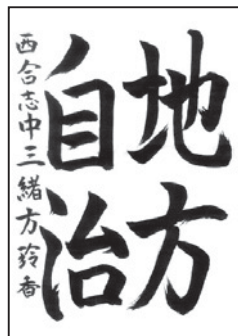 地方
自治
西合志中三緒方玲香